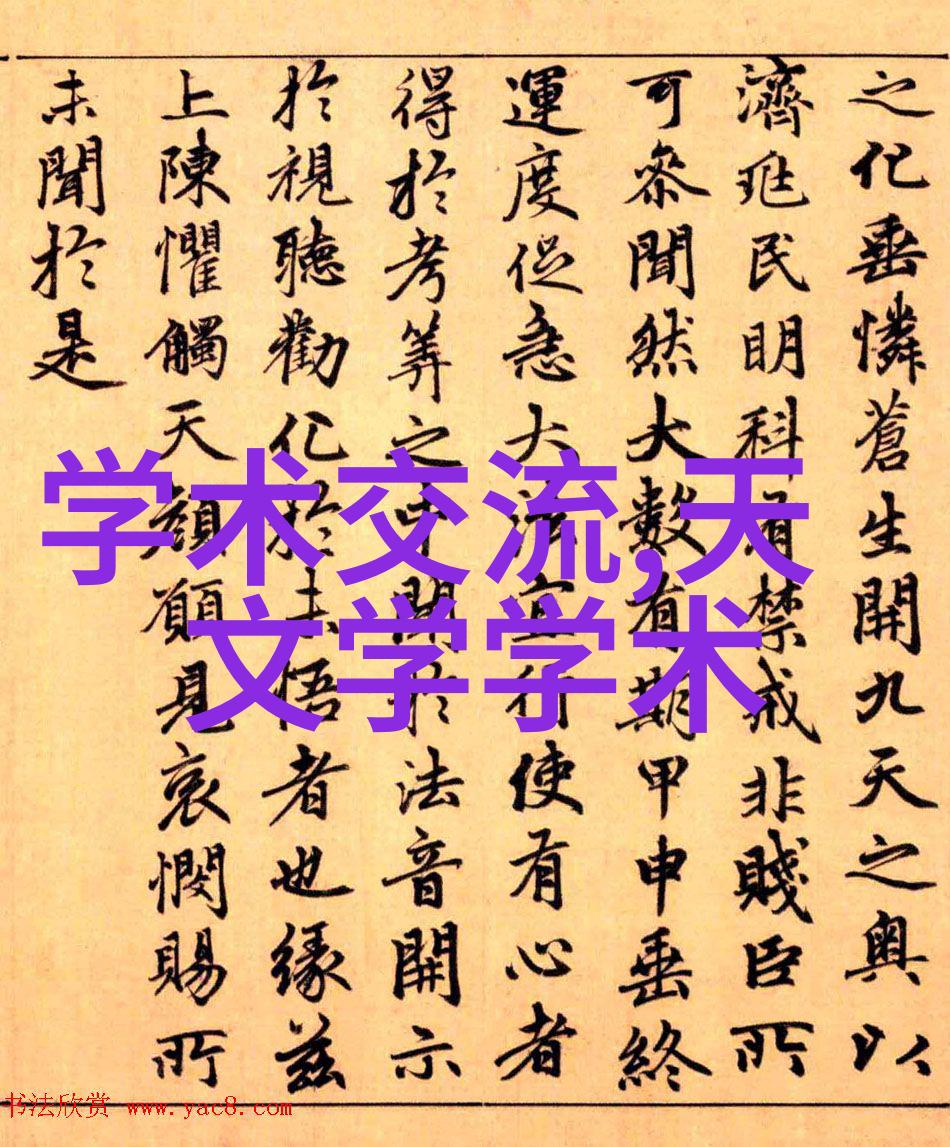 之化垂憐蒼生開九天之奧以
濟兆民明科有禁戒非賤臣所
可參聞然大數有期甲申垂終
運度促急大法宜行使有心者
得於考筭之中於法音開示
於視聽勸化於未悟者也緣茲
上陳懼觸天顏願見哀憫賜所
未聞於是
学术交流,天
文学学术
书法欣赏 www.yac8.com